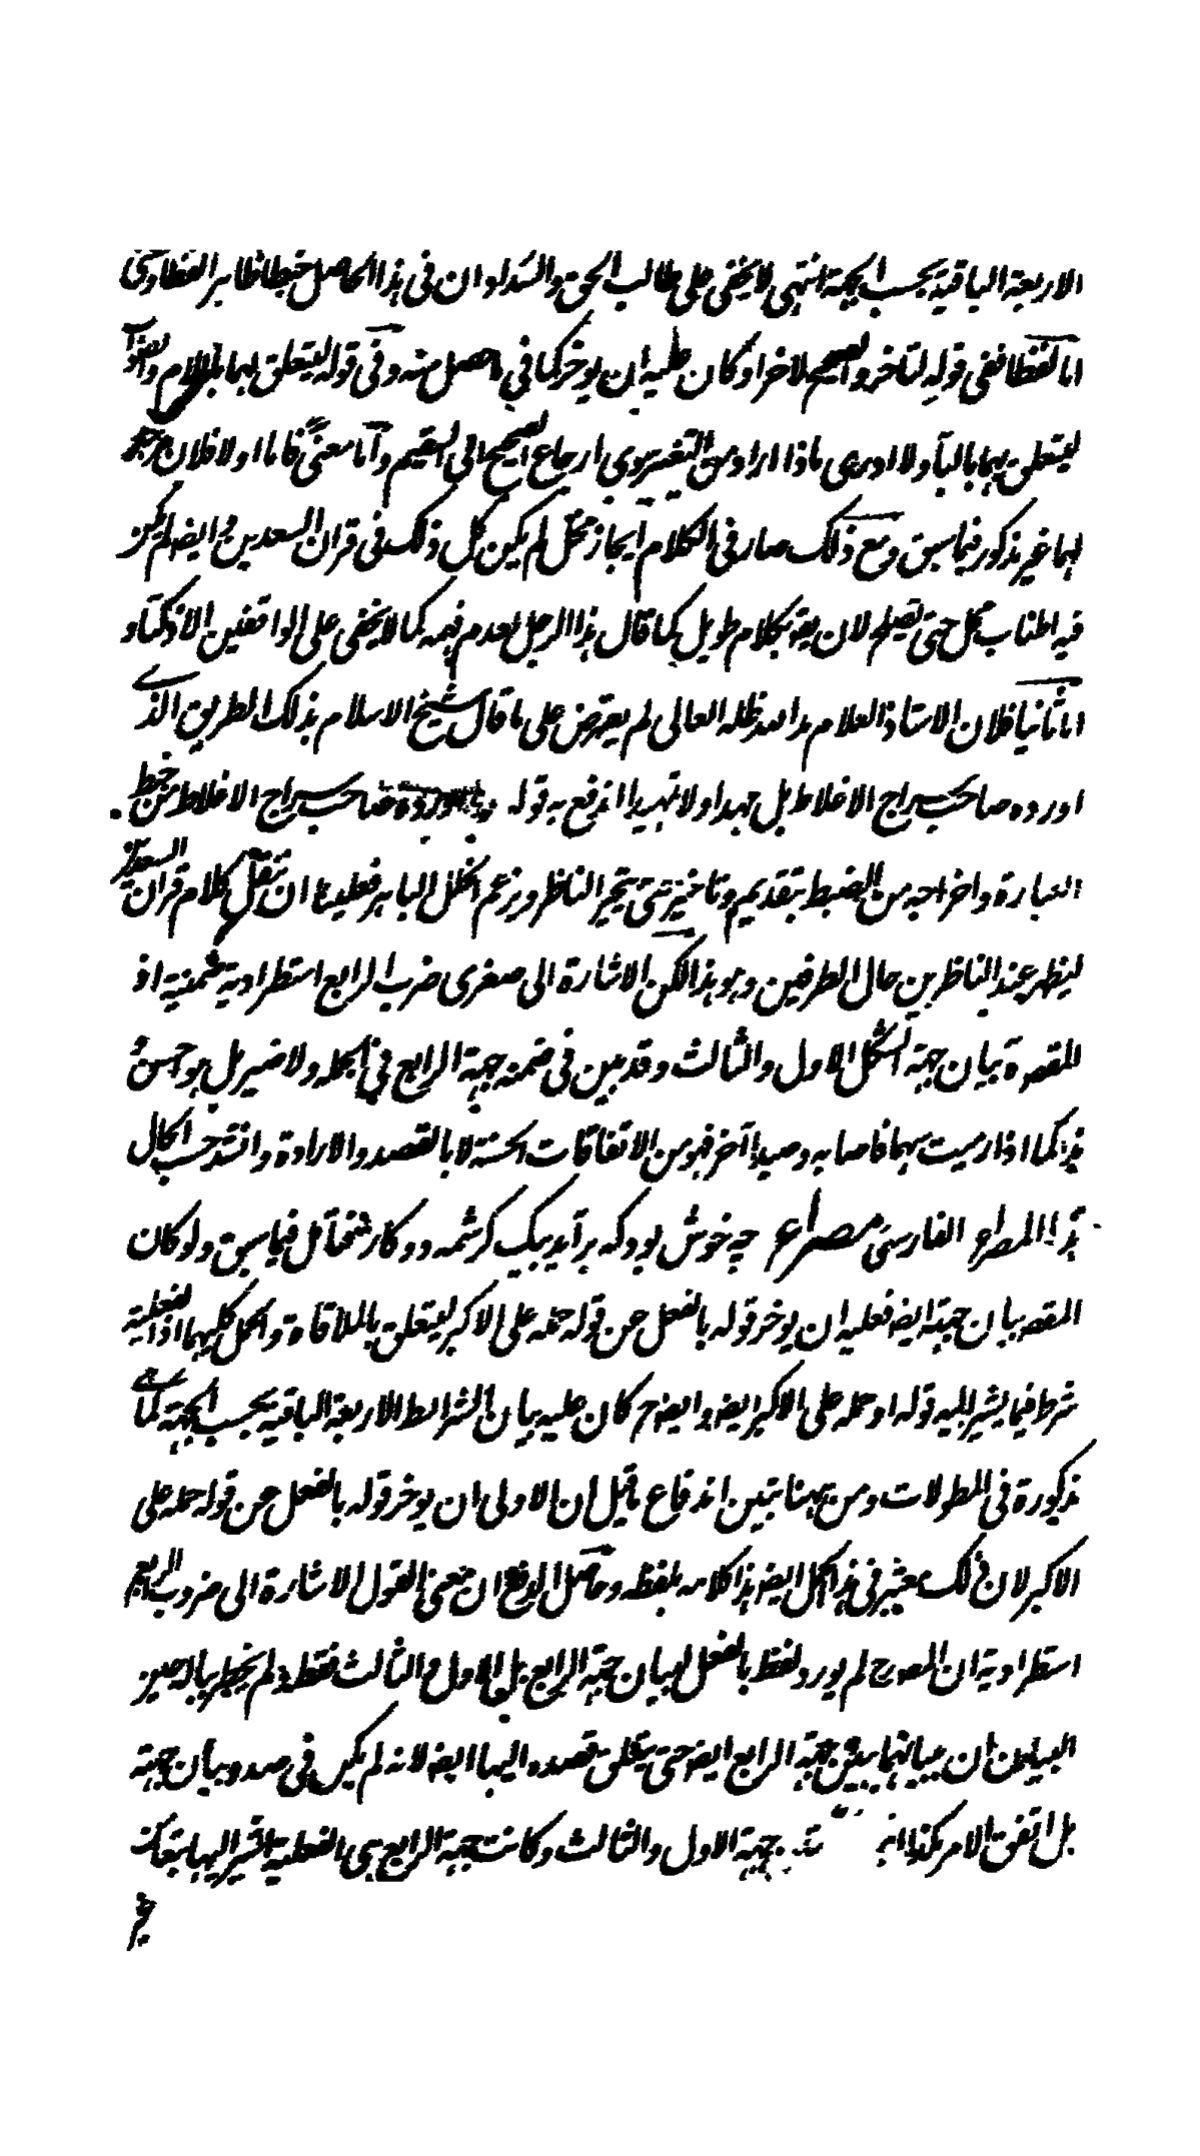 الاربعة الباقية بحسب الجهة انتهى لا يخفى على طالب الحق والسداد ان فى هذا الحاصل خبطا ظاهر لفظا ومعنى
اما لفظا ففى قوله لتاخر والصحيح لاخر او كان عليه ان يوخر كما في الاصل منه وفى قوله ليتعلق بهما باللام والصواب
ليتعلق بهما بالباء ولا ادرى ماذا اراد من التغير سوى ارجاع الصحيح الى السقيم واما معنى فاما اولا فلان
لهما غير مذكور فيما سبق ومع ذلك صار فى الكلام ايجاز مخل لم يكن كل ذلك فى قران السعدين وايضا لم يكن
فيه اطناب ممل حتى يصلح لان يقر بكلام طويل كما قال هذا الرجل لعدم فهمه كما لا يخفى على الواقفين الاذكياء و
اما ثانيا فلان الاستاذ العلام مد الله ظله العالى لم يعترض على ما قال شيخ الاسلام بذلك الطريق الذے
اورده صاحب سراج الاغلاط بل مهد اولا تمهيدا اندفع به قوله صاحب سراج الاغلاط من خبط
العبارة واخراجه من الضبط بتقديم وتاخير حتى يتحير الناظر ويزعم الخلل الباهر فعلينا ان ننقل كلام قران السعدين
ليظهر عند الناظرين حال الطرفين وهو هذا لكن الاشارة الى صغرى ضرب الرابع استطرادية ضمنية اذ
المقصود بيان جهة الشكل الاول والثالث وقد بين فى ضمنه جهة الرابع في الجملة ولا ضير بل هو حسن
هذا كما اذا رميت سهما فاصابه وصيدا آخر فهو من الاتفاقات الحسنة لا بالقصد والارادة وانشد حسب الحال
هذا المصرع الفارسى مصراع چه خوش بود كه برآيد بيك كرشمه دو كار فتامل فيما سبق ولو كان
المقصود بيان جهته ايضا فعليه ان يوخر قوله بالفعل عن قوله حمله على الاكبر ليتعلق بالملاقاة والحمل كليهما اذ الفعلية
شرط فيما يشير اليه قوله او حمله على الاكبر ايضا وايضا ح كان عليه بيان الشرائط الاربعة الباقية بحسب الجهة كما هے
مذكورة فى المطولات ومن ههنا تبين اندفاع ما قيل ان الاولى ان يوخر قوله بالفعل عن قوله حمله على
الاكبر لان ذلك معتبر فى هذا الحمل ايضا هذا كلامه بلفظه وحاصل الدفع ان معنى القول الاشارة الى ضروب الرابع
استطرادية ان المصنف رح لم يورد لفظ بالفعل لبيان جهة الرابع بل الاول والثالث فقط ولم يخطر بباله حين
البيان ان بيانهما يبين جهة الرابع ايضا حتى يتعلق قصده اليها ايضا لانه لم يكن فى صدد بيان جهة
بل اتفق الامر هكذا انه جهة الاول والثالث وكانت جهة الرابع هى الفعلية اشير اليها بتلك